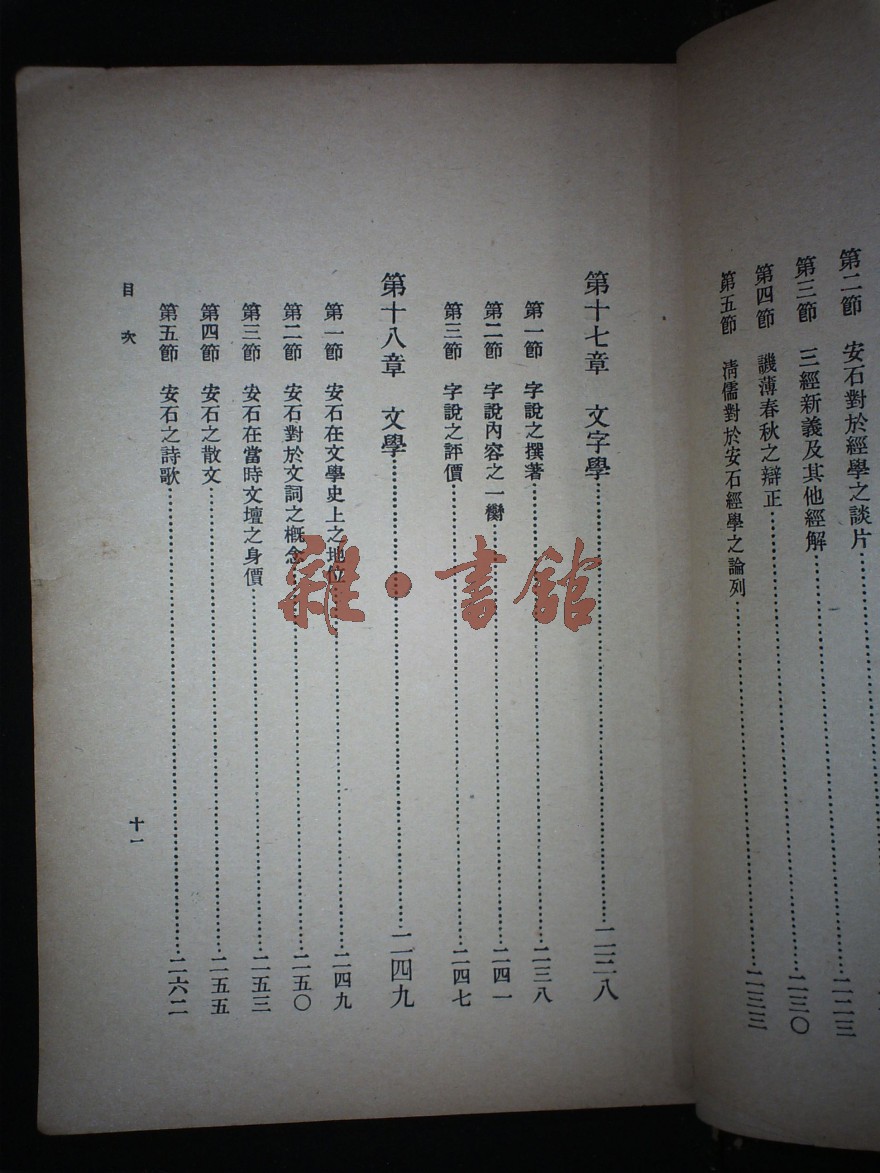 第二節 安石對於經學之談片………二二三
第三節 三經新義及其他經解………二三〇
第四節 譏薄春秋之辯正………二三三
第五節 清儒對於安石經學之論列………
第十七章 文字學………二三八
第一節 字說之撰著………二三八
第二節 字說內容之一臠………二四一
第三節 字說之評價………二四七
第十八章 文學………二四九
第一節 安石在文學史上之地位………二四九
第二節 安石對於文詞之概念………二五〇
第三節 安石在當時文壇之身價………二五三
第四節 安石之散文………二五五
第五節 安石之詩歌………二六二
目次
十一
雜·書館